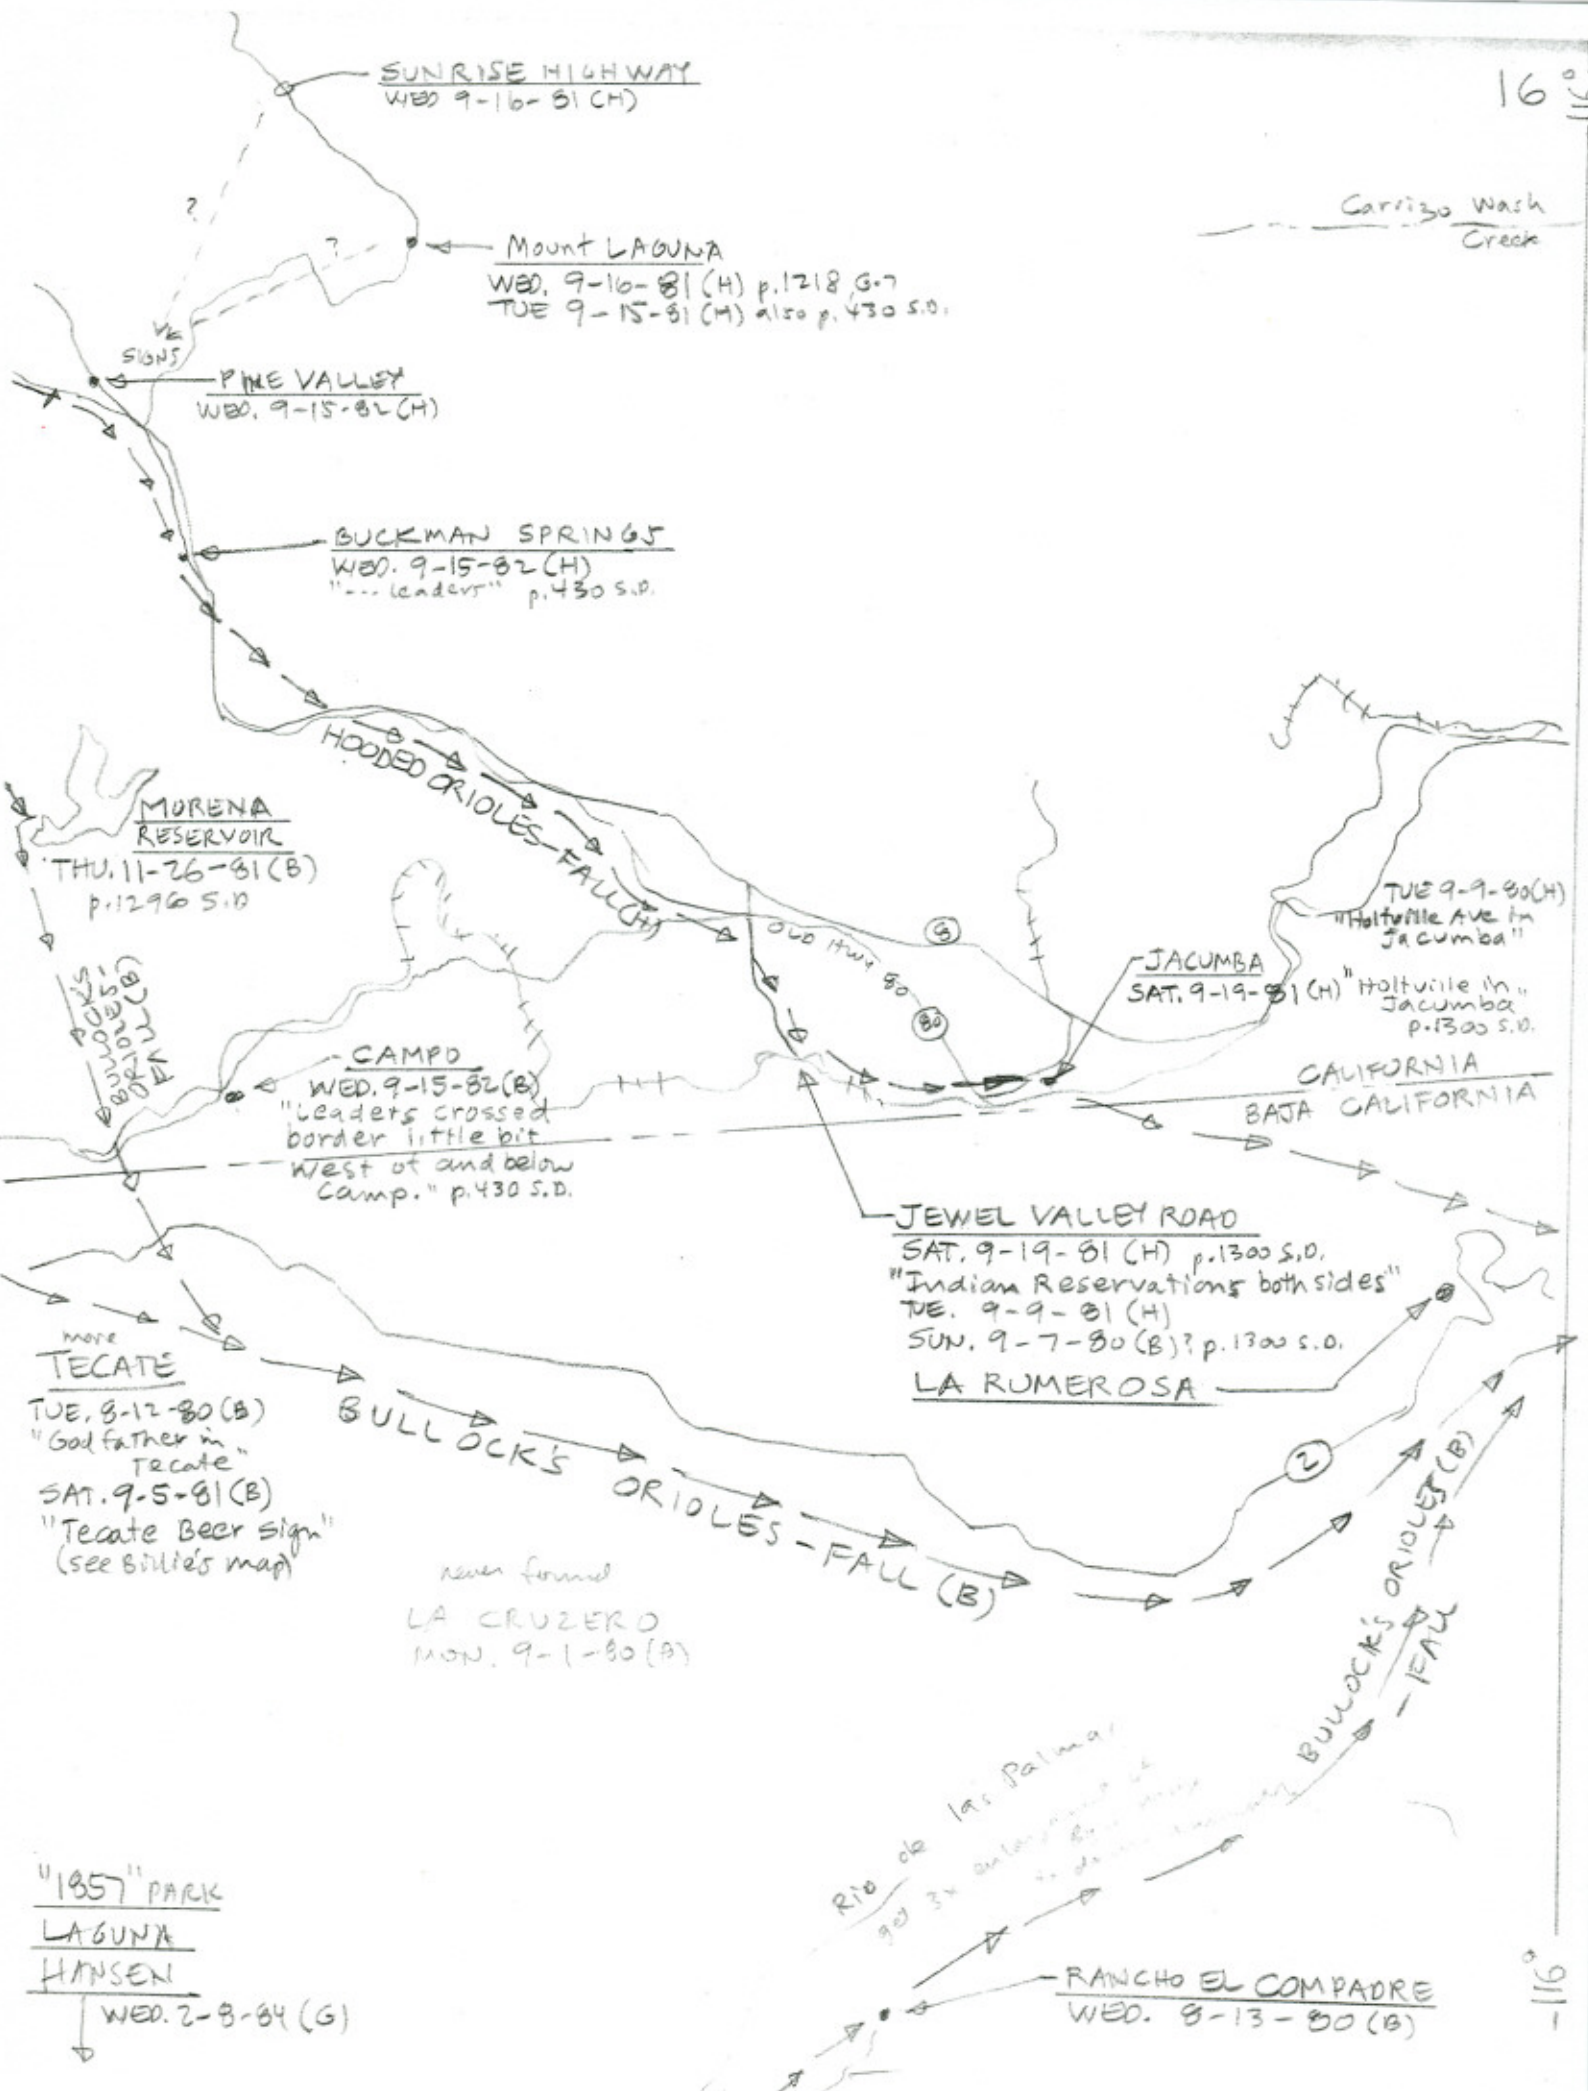 SUNRISE HIGHWAY
WED 9-16-81 (H)
16
Carrizo Wash
Creek
?
?
Mount LAGUNA
WED. 9-16-81 (H) p.1218 G-7
TUE 9-15-81 (H) also p. 430 S.D.
SIGNS
PINE VALLEY
WED. 9-15-82 (H)
BUCKMAN SPRINGS
WED. 9-15-82 (H)
"--- leaders" p.430 S.D.
HOODED ORIOLES-FALL (H)
MORENA
RESERVOIR
THU. 11-26-81 (B)
p.1296 S.D
TUE 9-9-80 (H)
"Holtville Ave in
Jacumba"
8
OLD HWY 80
80
JACUMBA
SAT. 9-19-81 (H) "Holtville in
Jacumba"
p.1300 S.D.
BULLOCK'S
ORIOLES-
FALL (B)
CAMPO
WED. 9-15-82 (B)
"Leaders crossed
border little bit
west of and below
Camp." p.430 S.D.
CALIFORNIA
BAJA CALIFORNIA
JEWEL VALLEY ROAD
SAT. 9-19-81 (H) p.1300 S.D.
"Indian Reservations both sides"
TUE. 9-9-81 (H)
SUN. 9-7-80 (B)? p.1300 S.D.
LA RUMEROSA
more
TECATE
TUE. 8-12-80 (B)
"Godfather in
Tecate"
SAT. 9-5-81 (B)
"Tecate Beer sign"
(see Billie's map)
BULLOCK'S ORIOLES-FALL (B)
2
never found
LA CRUZERO
MON. 9-1-80 (B)
BULLOCK'S ORIOLES (B)
- FALL
Rio de las Palmas
got 3x
"1857" PARK
LAGUNA
HANSEN
WED. 2-8-84 (G)
RANCHO EL COMPADRE
WED. 8-13-80 (B)
-116°